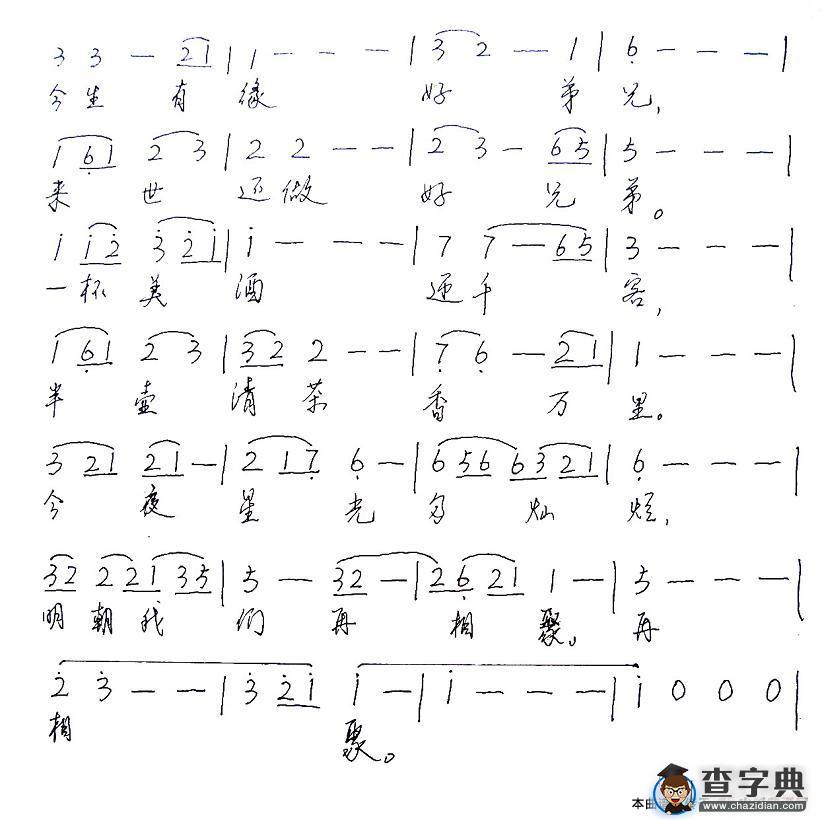 3 3 — 21 | 1 — — — | 3 2 — 1 | 6̣ — — — |
今生 有 缘 好 弟 兄，
1 6̣1 2 3 | 2 2 — — | 2 3 — 65 | 5 — — — |
来 世 还做 好 兄 弟。
i i2̇ 3̇ 2̇i | i — — — | 7 7 — 65 | 3 — — — |
一杯 美 酒 迎千 客，
1 6̣1 2 3 | 32 2 — — | 7̣ 6̣ — 21 | 1 — — — |
半 壶 清 茶 香 万 里。
3 21 21 — | 2 17̣ 6̣ — | 6 56 63 21 | 6̣ — — — |
今 夜 星 光 多 灿 烂，
32 2 21 35 | 5 — 32 — | 26̣ 21 1 — | 5 — — — |
明 朝 我 们 再 相 聚。再
2̇ 3̇ — — | 3̇ 2̇i i — | i — — — | i 0 0 0 |
相 聚。
查字典
www.chazidian.com
本曲